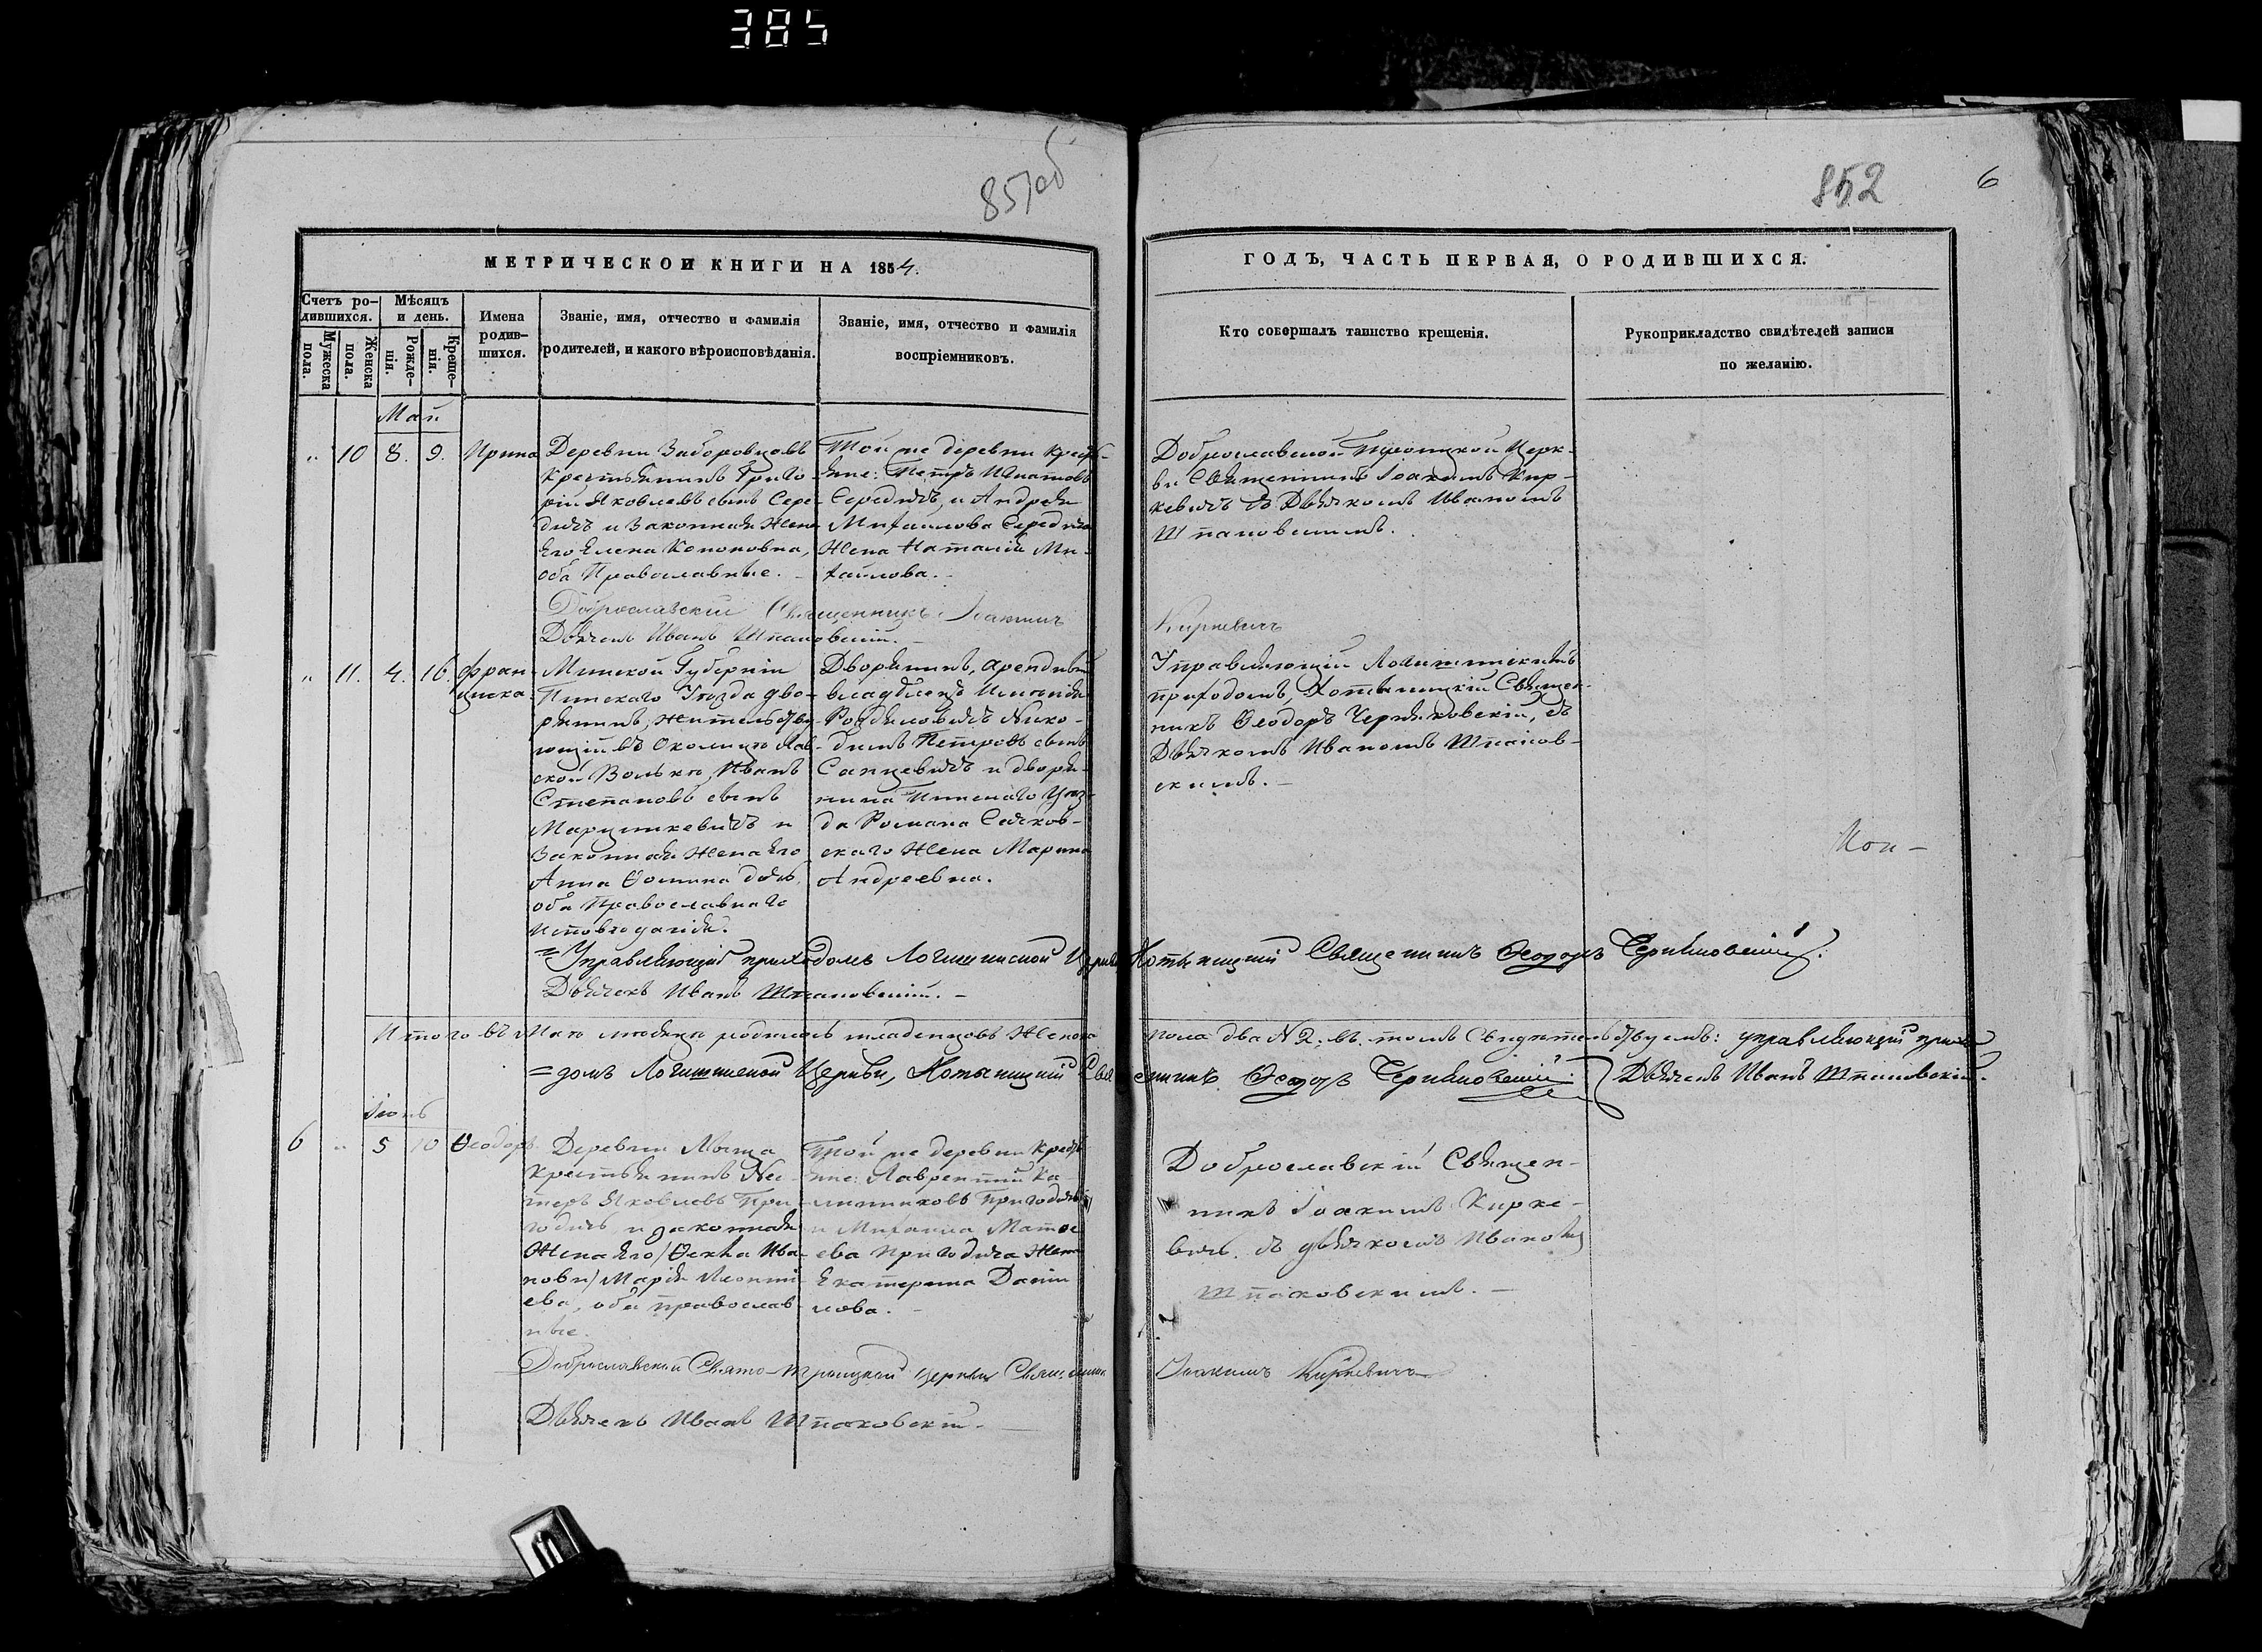 385
851об
852
6
МЕТРИЧЕСКОЙ КНИГИ НА 1854.
Счетъ ро-
дившихся.
Мужеска
пола.
Женска
пола.
Мѣсяцъ
и день.
Рожде-
нія.
Креще-
нія.
Имена
родив-
шихся.
Званіе, имя, отчество и фамилія
родителей, и какого вѣроисповѣданія.
Званіе, имя, отчество и фамилія
воспріемниковъ.
ГОДЪ, ЧАСТЬ ПЕРВАЯ, О РОДИВШИХСЯ.
Кто совершалъ таинство крещенія.
Рукоприкладство свидѣтелей записи
по желанію.
Май
" 10 8. 9. Ирина
Деревни Заборовцовъ
Крестьянинъ Григо-
рій Яковлевъ сынъ Сере-
дичъ и Законная Жена
Его Елена Кононовна,
оба Православные.
Той же деревни Крестья-
не: Петръ Игнатовъ
Середичъ, и Андрея
Михаилова Середича
Жена Наталія Ми-
хаилова.
Доброславской Троицкой Церк-
ви Священникъ Іоакимъ Кир-
кевичъ съ Дьячкомъ Иваномъ
Шпаковскимъ.
Доброславскій Священникъ Іоакимъ Киркевичъ
Дьячекъ Иванъ Шпаковскій.
" 11. 4. 16. Фран-
циска
Минской Губерніи
Пинскаго Уѣзда дво-
рянинъ, жительству-
ющій въ Околицѣ
ской Волькѣ, Иванъ
Степановъ сынъ
Марцинкевичъ и
Законная Жена Его
Анна Ѳомина дочь
оба Православнаго
Исповѣданія.
Дворянинъ, Арендный
владѣлецъ Имѣнія
Нико-
димъ Петровъ сынъ
Сапцевичъ и дворя-
нина Пинскаго Уѣз-
да Романа Сачков-
скаго Жена Марина
Андреевна.
Управляющій Логишинскимъ
приходомъ, Хотыницкій Священ-
никъ Ѳеодоръ Черняковскій, съ
Дьячкомъ Иваномъ Шпаков-
скимъ.
=Управляющій приходомъ Логишинской Церкви Хотыницкій Священникъ Ѳеодоръ Черняковскій.
Дьячекъ Иванъ Шпаковскій.
Итого въ Маѣ мѣсяцѣ родилось младенцовъ Женска пола два № 2. въ томъ Свидѣтельствуемъ: управляющій прихо
=домъ Логишинской Церкви, Хотыницкій Священникъ Ѳеодоръ Черняковскій. Дьячекъ Иванъ Шпаковскій.
Іюнь
6 " 5 10 Ѳеодоръ
Деревни Мокца
Крестьянинъ Нес-
теръ Яковлевъ При-
годичъ и законная
Жена Его /Ѳекла Ива-
нови/ Марія Леонті-
ева, оба православ-
ные.
Той же деревни Крестья-
не: Лаврентій Ка-
линниковъ Пригодичъ
и Михаила Матѳе-
ева Пригодича Жена
Екатерина Даніи-
лова.
Доброславскій Священ-
никъ Іоакимъ Кирке-
вичъ съ дьячкомъ Иваномъ
Шпаковскимъ.
Доброславской Свято-Троицкой церкви Священникъ Іоакимъ Киркевичъ
Дьячекъ Иванъ Шпаковскій.